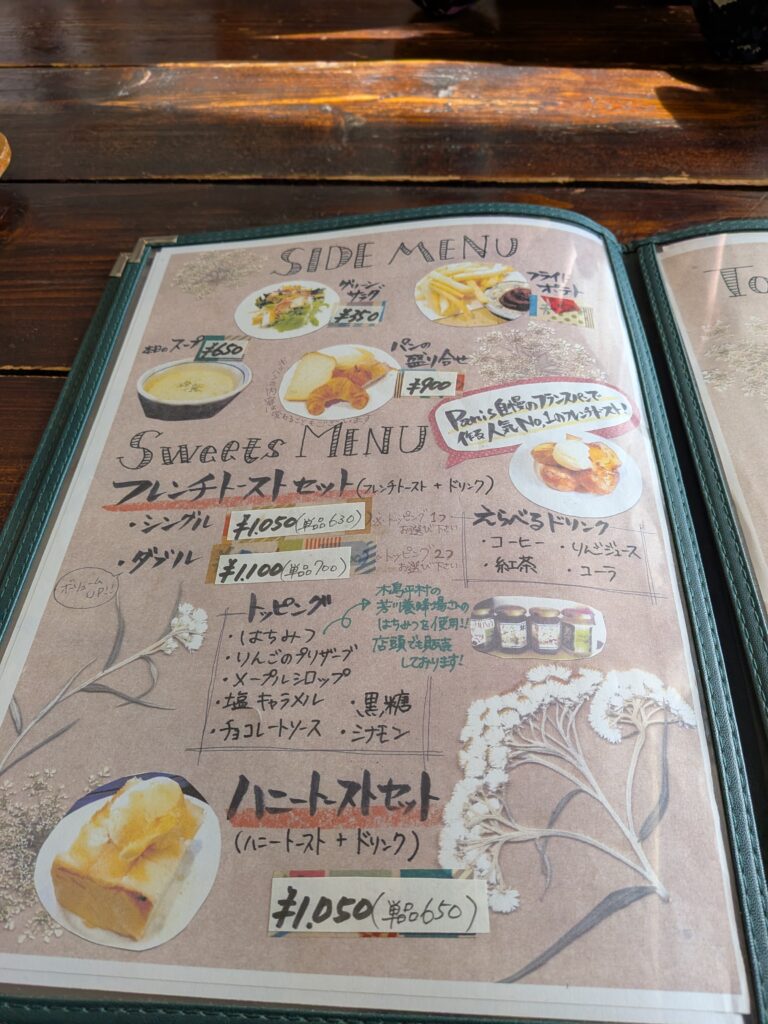 SIDE MENU
グリーン
サラダ
¥350
フライド
ポテト
本日のスープ
¥650
パンの
盛り合せ
¥900
Panis自慢のフランスパンで
作る人気No.1のフレンチトースト!
Sweets MENU
フレンチトーストセット(フレンチトースト + ドリンク)
・シングル ¥1.050(単品630) トッピング1つ
お選び下さい
・ダブル ¥1.100(単品700) トッピング2つ
お選び下さい
ボリューム
UP!!
えらべるドリンク
・コーヒー ・りんごジュース
・紅茶 ・コーラ
トッピング
・はちみつ
・りんごのプリザーブ
・メープルシロップ
・塩キャラメル ・黒糖
・チョコレートソース ・シナモン
木島平村の
芳川養蜂場さんの
はちみつを使用!!
店頭でも販売
しております!
ハニートーストセット
(ハニートースト + ドリンク)
¥1.050(単品650)